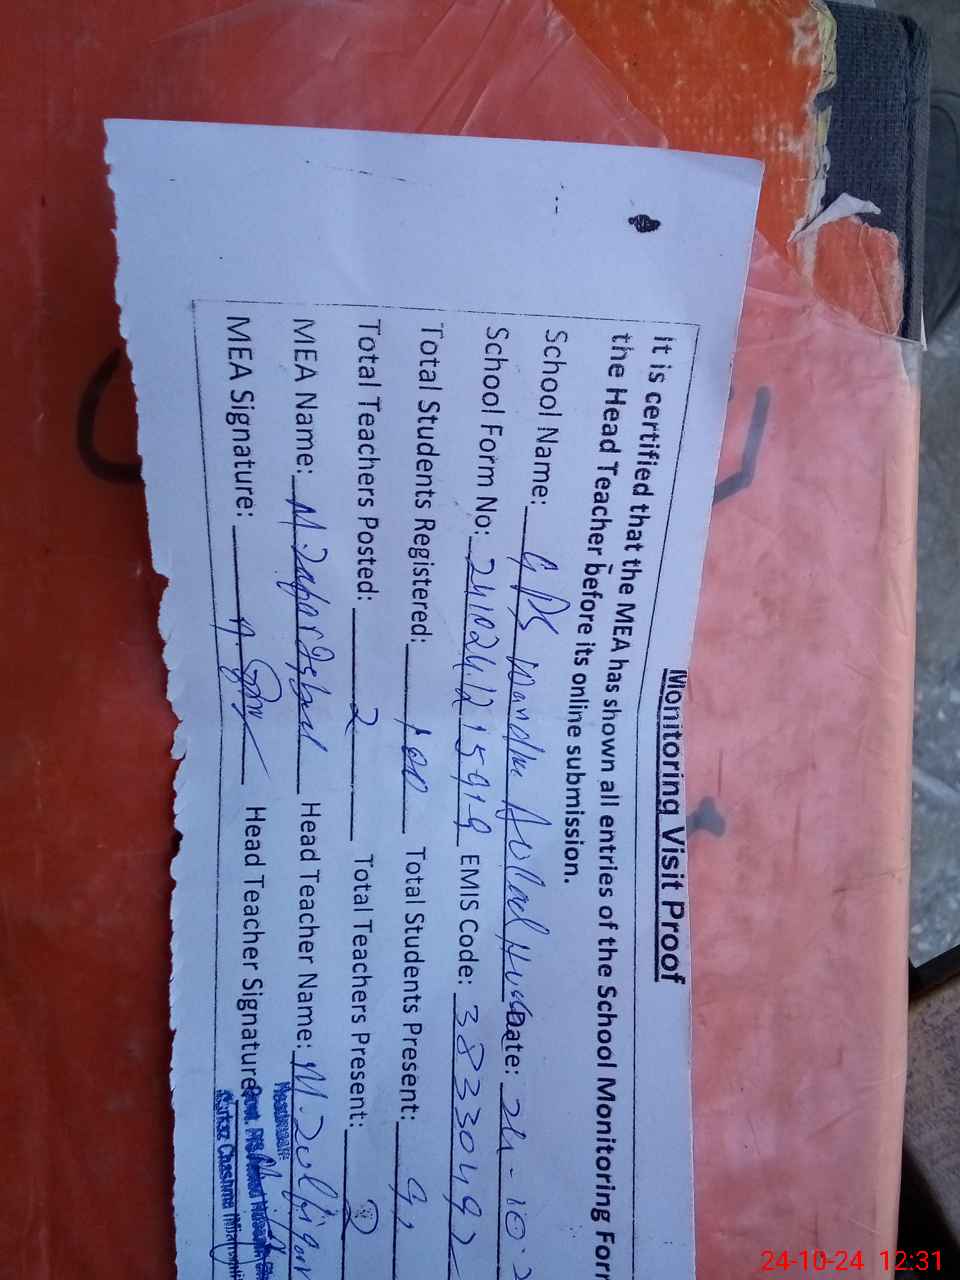 Monitoring Visit Proof
it is certified that the MEA has shown all entries of the School Monitoring Form
the Head Teacher before its online submission.
School Name: GPS Wandhi Date: 24-10-2
School Form No: 241024121591-9 EMIS Code: 38330492
Total Students Registered: 100 Total Students Present: 92
Total Teachers Posted: 2 Total Teachers Present: 2
MEA Name: M. Zafar Iqbal Head Teacher Name: M. Zulfiqar
MEA Signature: Head Teacher Signature
Govt.
Markaz Chashma
24-10-24 12:31